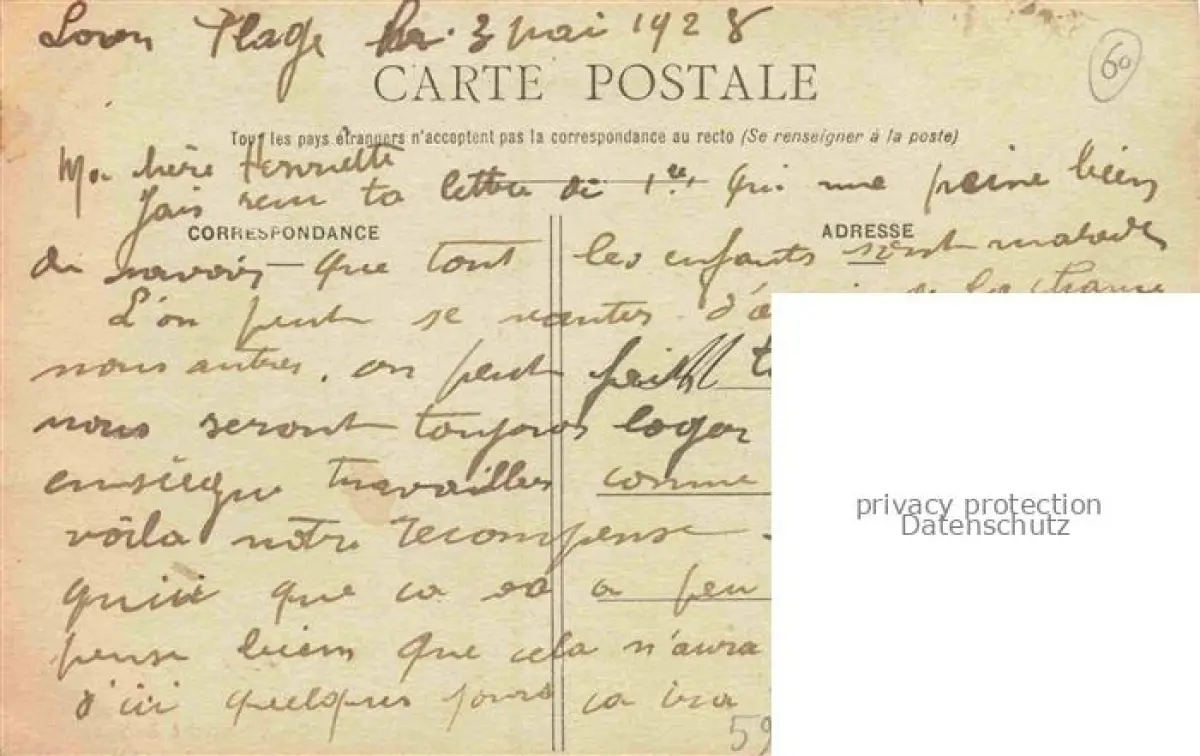 Loon Plage le 3 mai 1928
60
CARTE POSTALE
Tous les pays étrangers n'acceptent pas la correspondance au recto (Se renseigner à la poste)
Ma chère Henriette
Jais reçu ta lettre du 1er qui me peine bien
CORRESPONDANCE
ADRESSE
de savoir que tout les enfants sont malades
L'on peut se vanter d'a de la chance
nous autres, on peut
nous seront toujours loger
travailler comme
voila notre recompense
que ca va a peu
pense bien que cela n'aura
d'ici quelques jours ca ira
59
privacy protection
Datenschutz